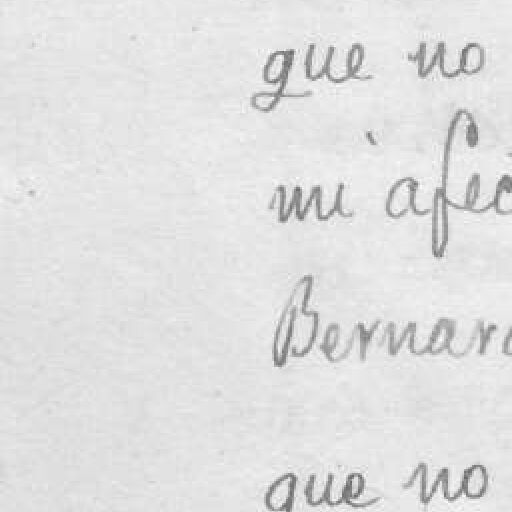 que no
mi afec
Bernard
que no